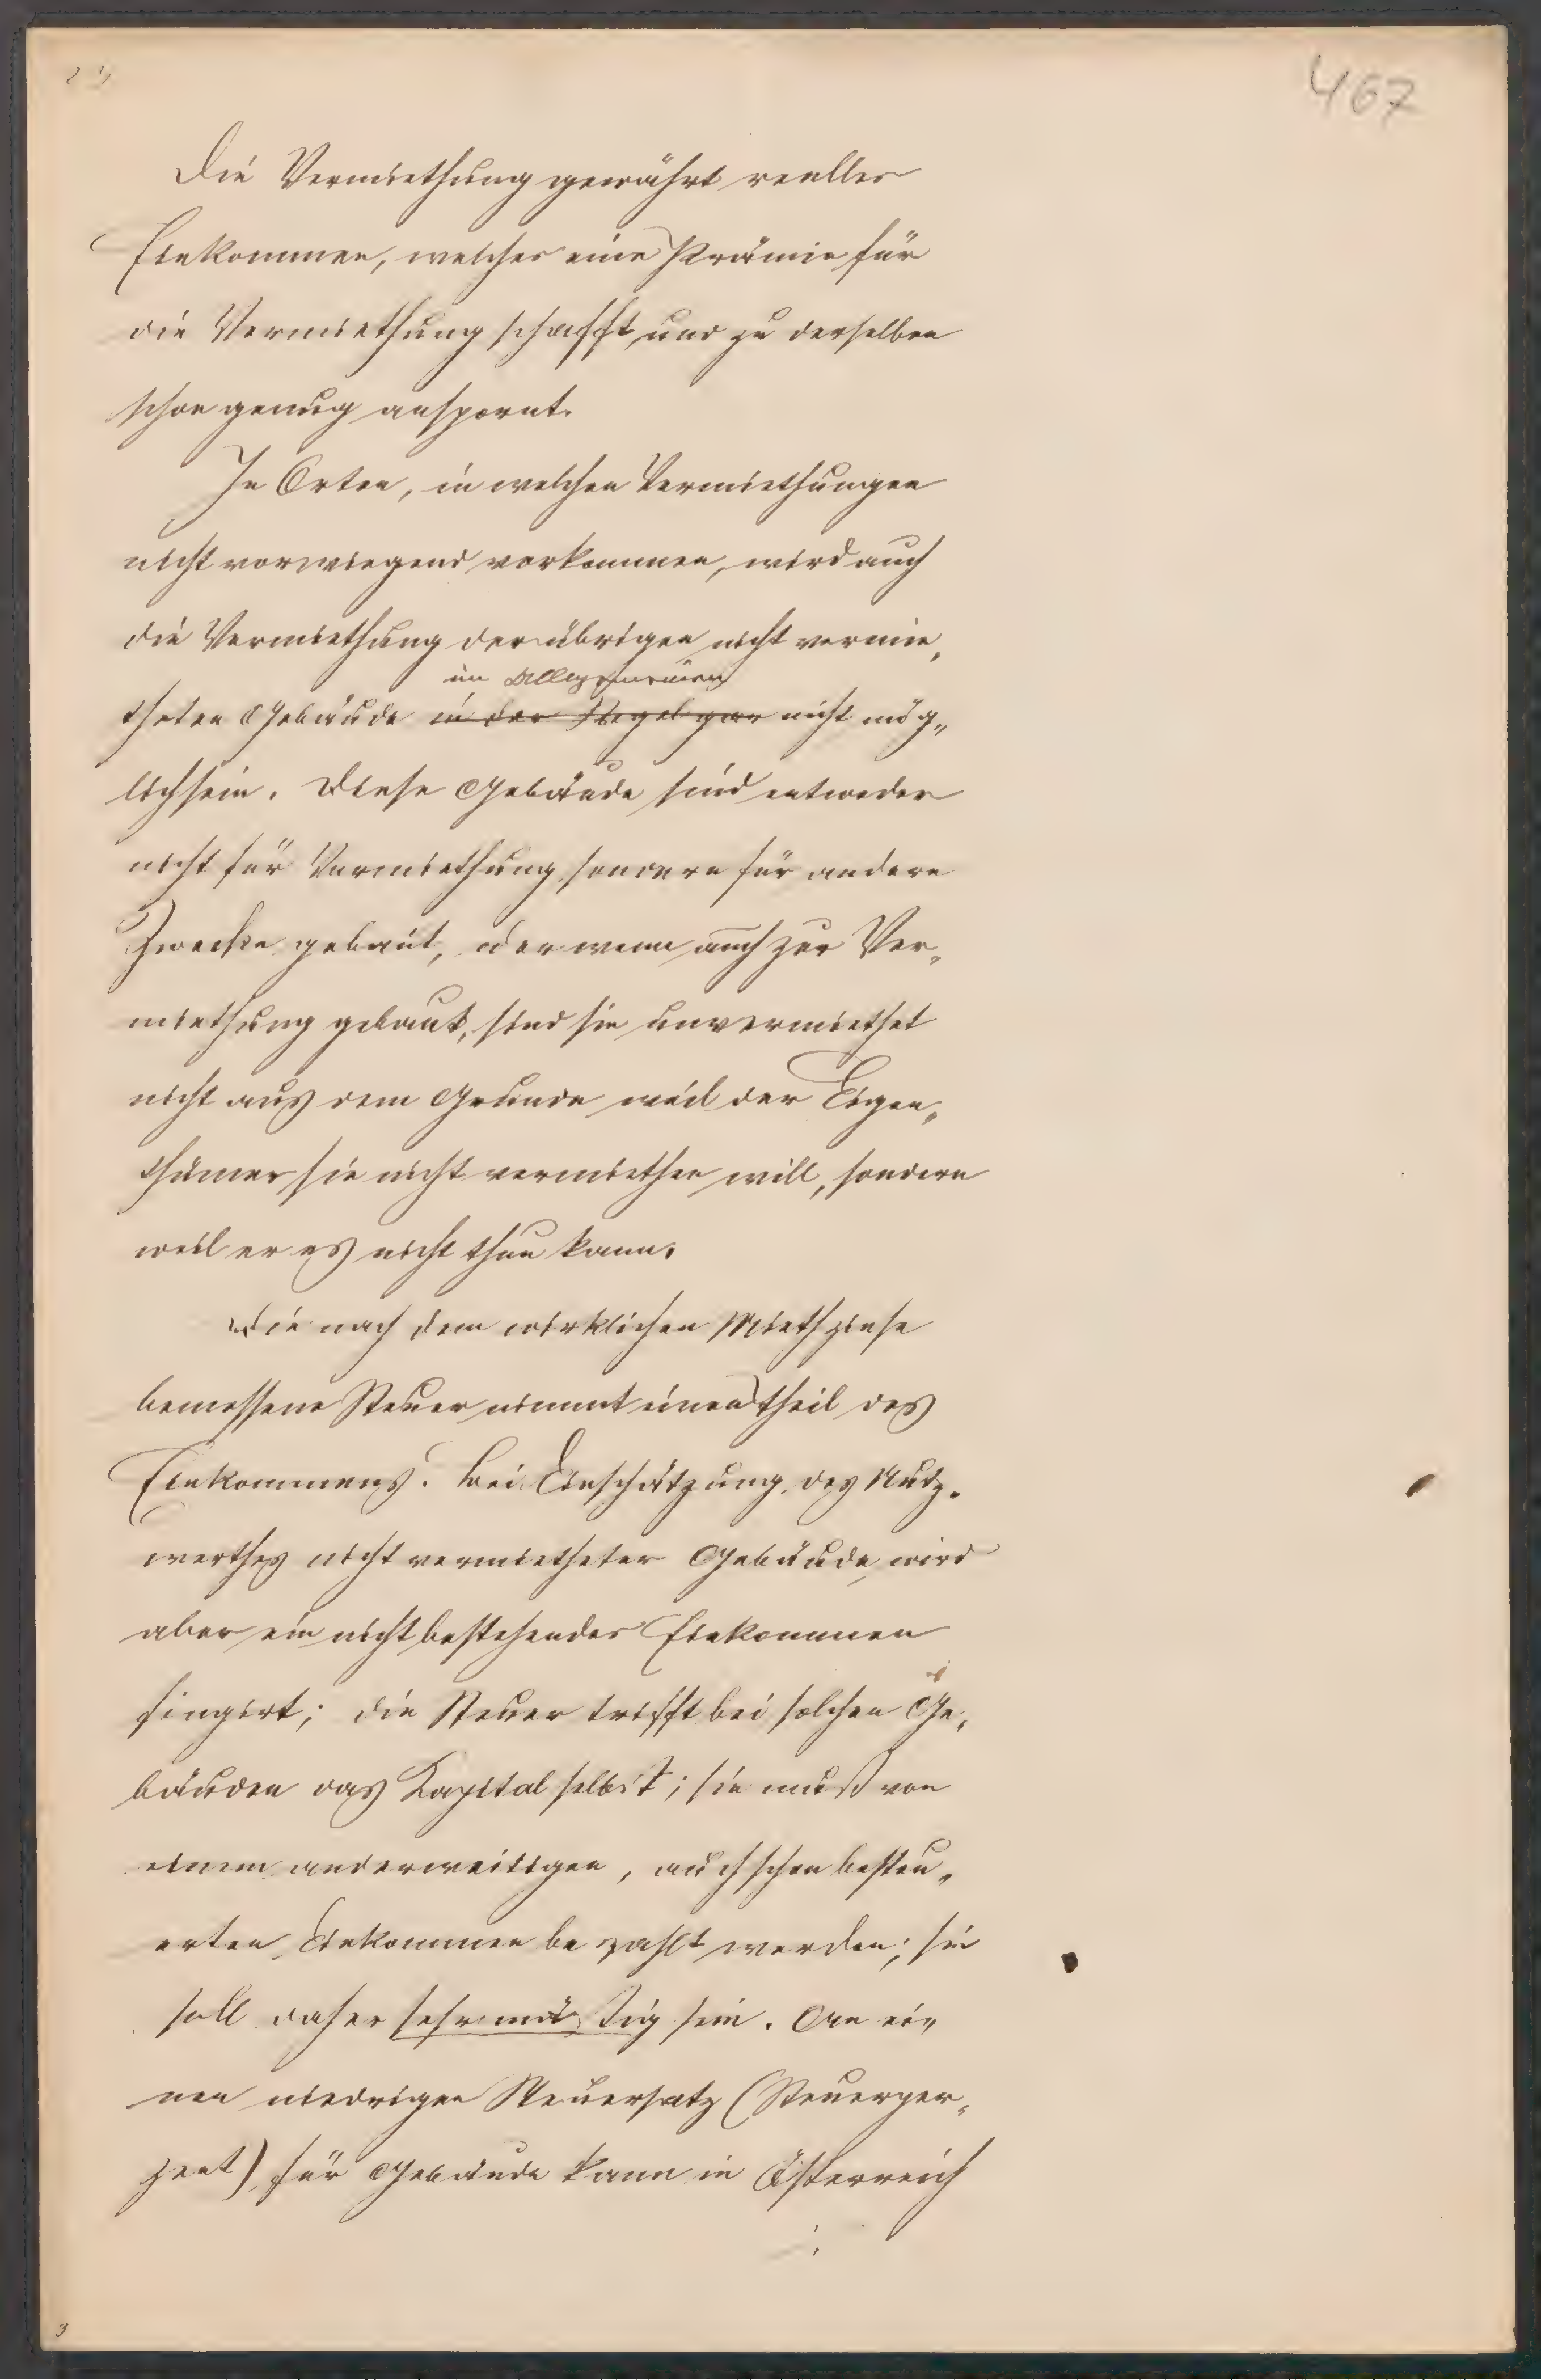 467
Die Vermiethung gewährt reelles
Einkommen, welches eine Prämie für
die Vermiethung schafft und zu derselben
schon genug anspornt.
In Orten, in welchen Vermiethungen
nicht vorwiegend vorkommen, wird auch
die Vermiethung der übrigen nicht vermie„
im Allgemeinen
theten Gebäude in der Regel gar nicht mög„
lich sein. Diese Gebäude sind entweder
nicht für Vermiethung sondern für andere
Zwecke gebaut, oder wenn auch zur Ver„
miethung gebaut, sind sie unvermiethet
nicht aus dem Grunde weil der Eigen„
thümer sie nicht vermiethen will, sondern
weil er es nicht thun kann.
Die nach dem wirklichen Miethzinse
bemessene Steuer nimmt einen Theil des
Einkommens. Bei Einschätzung des Nutz„
werthes nicht vermietheter Gebäude wird
aber ein nicht bestehendes Einkommen
fingirt; die Steuer trifft bei solchen Ge„
bäuden das Kapital selbst; sie muß von
einem anderweitigen, auch schon besteu„
erten Einkommen bezahlt werden; sie
soll daher sehr mäßig sein. An ei„
nen niedrigen Steuersatz (Steuerper„
zent) für Gebäude kann in Österreich